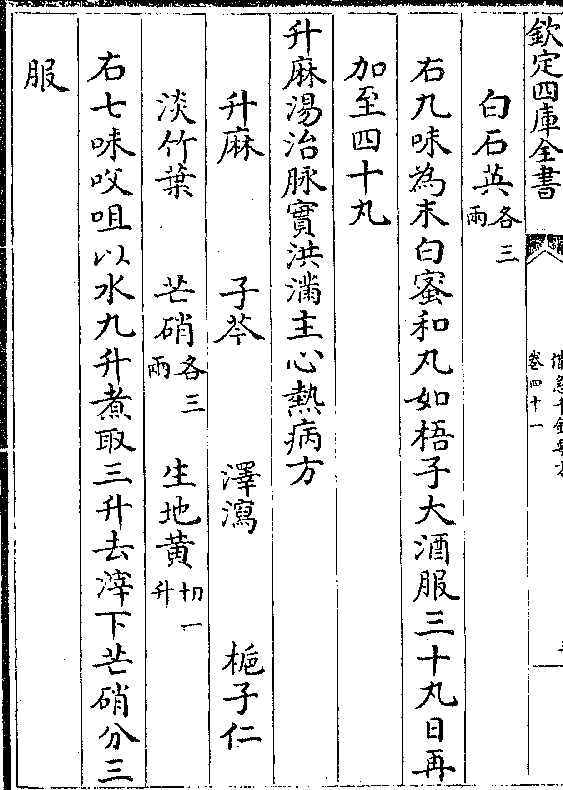 欽定四庫全書
卷四十一
白石英各三兩
右九味為末白蜜和丸如梧子大酒服三十丸日再
加至四十丸
升麻湯治脉實洪滿主心熱病方
升麻 子芩 澤瀉 梔子仁
淡竹葉 芒硝各三兩 生地黄切一升
右七味㕮咀以水九升煮取三升去滓下芒硝分三
服